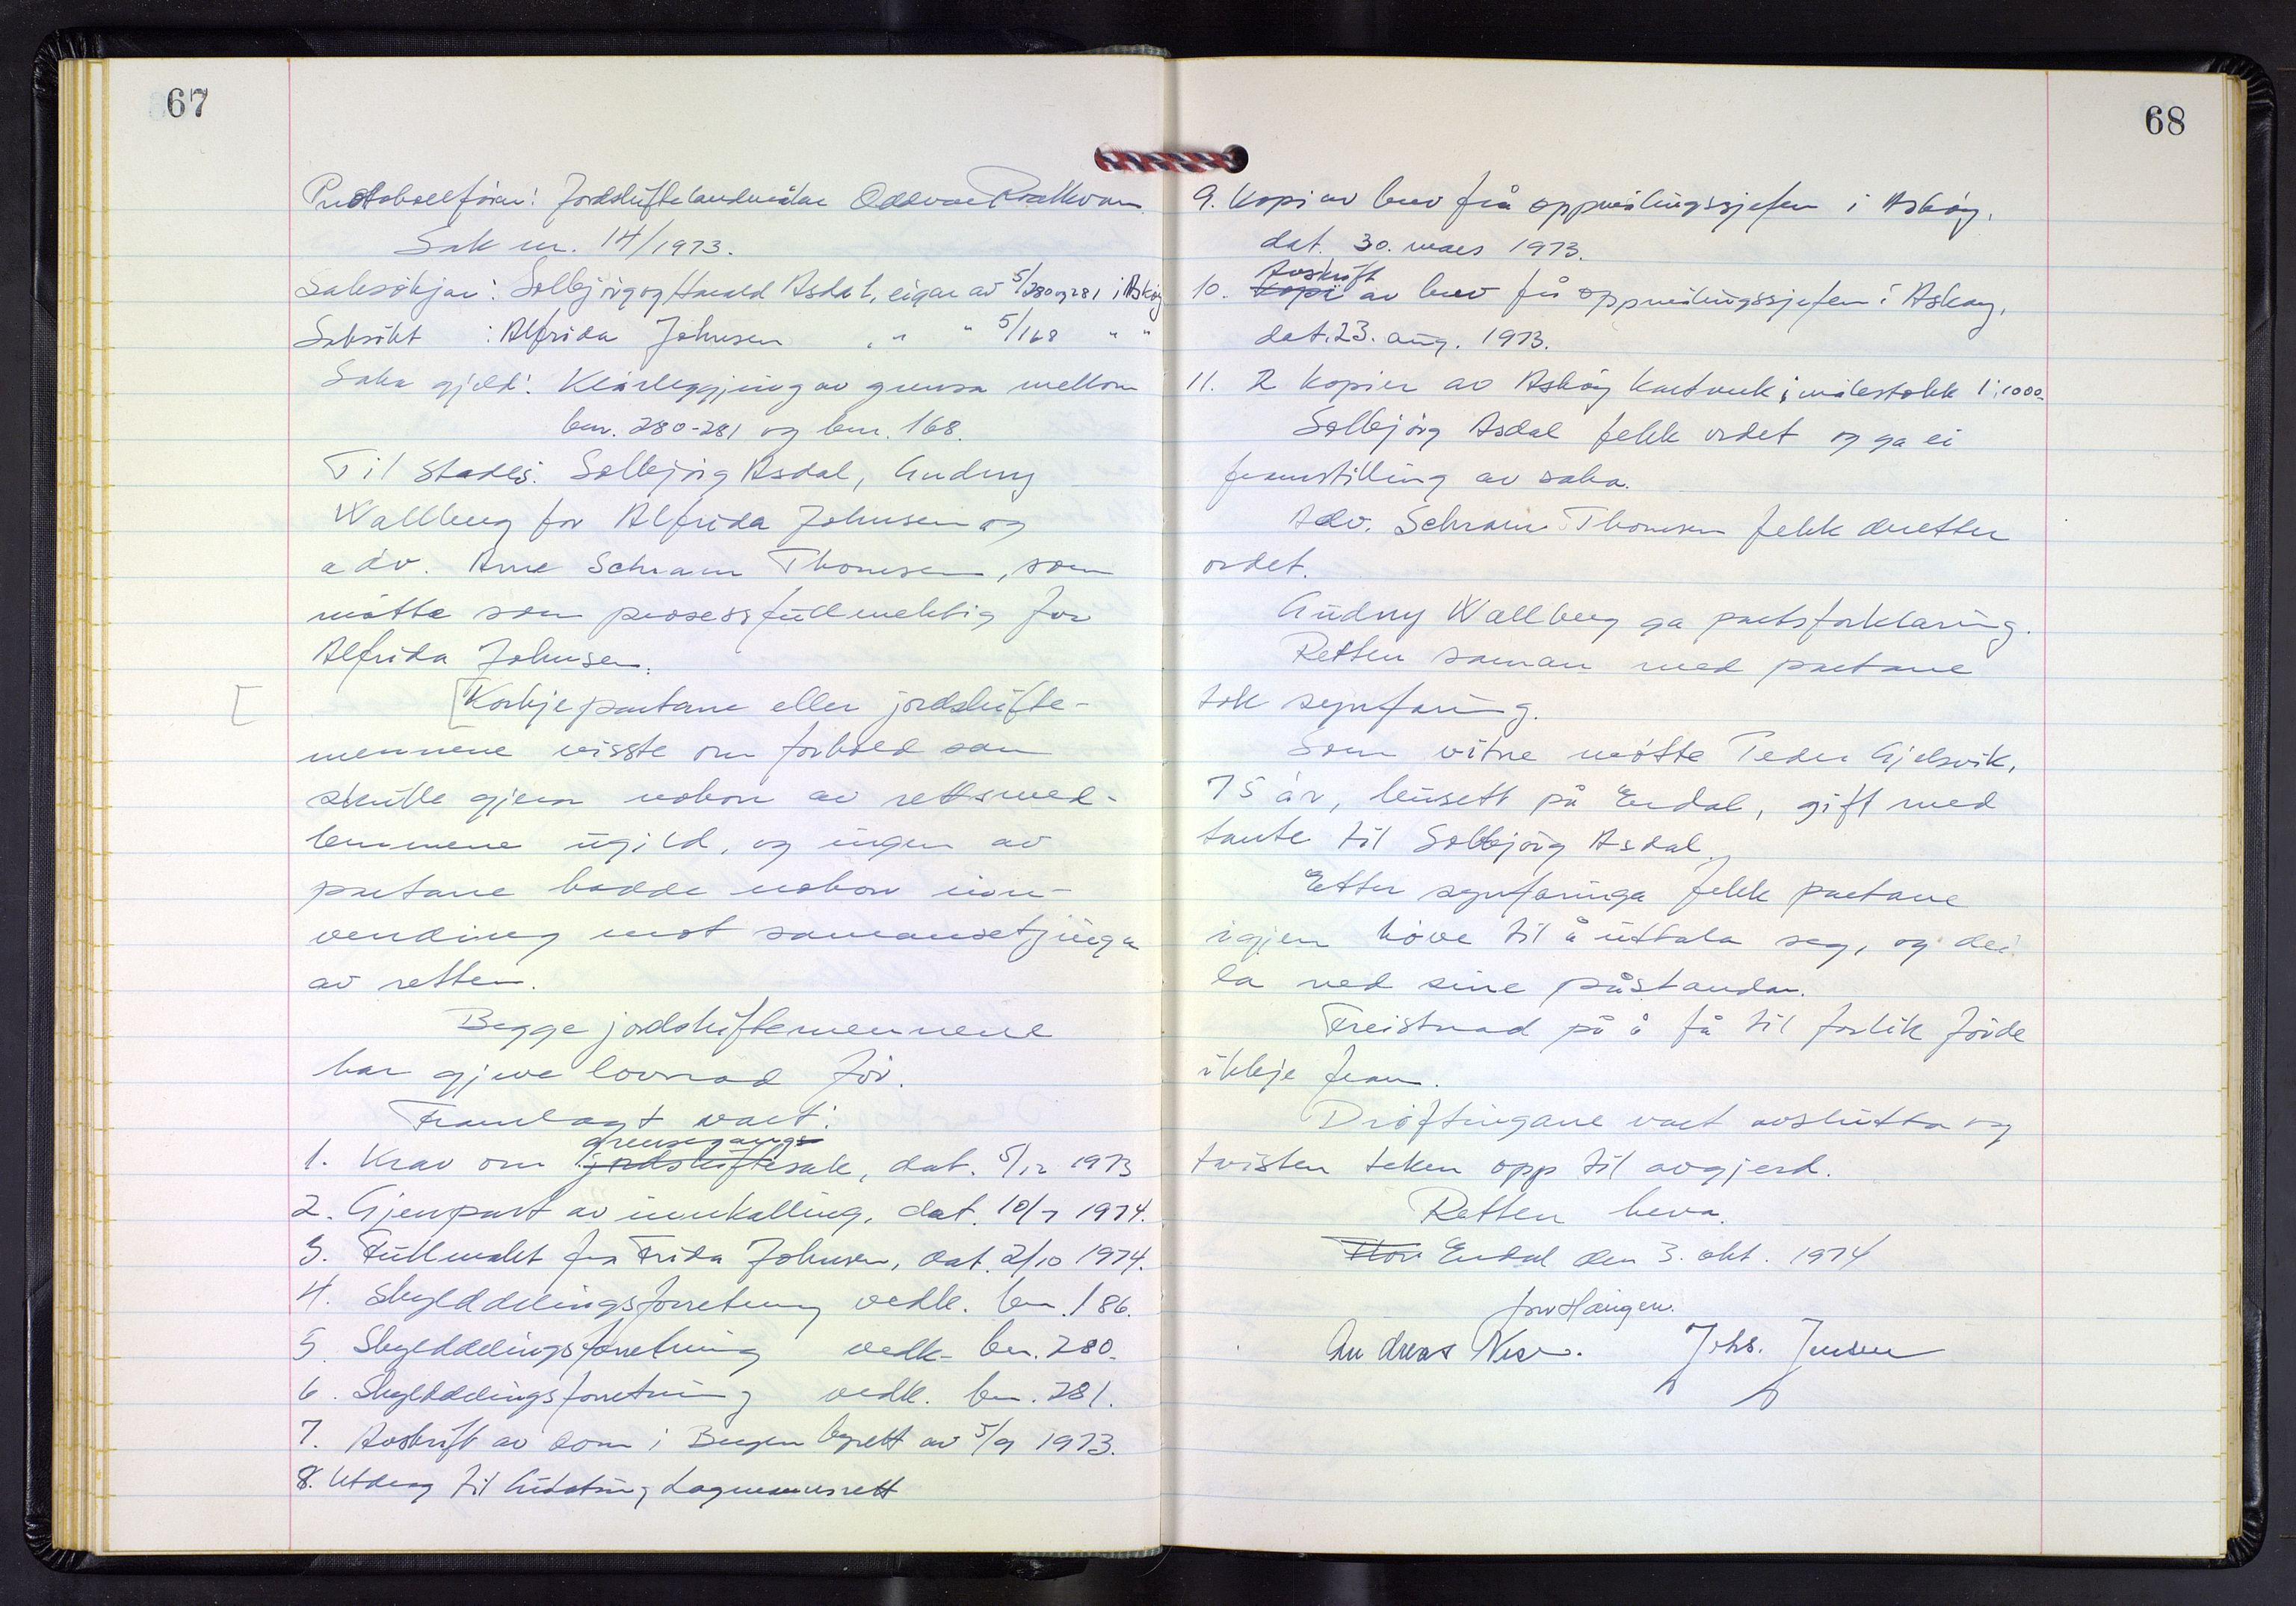 67
Protokollførar: Jordskiftelandmålar Oddvar
Sak nr. 14/1973.
Saksøkjar: Solbjörg og Harald Asdal, eigar av 5/280 og 281 i Askøy
Saksökt : Alfrida Johnsen " " 5/168 " "
Saka gjeld: Klårleggjing av grensa mellom
bnr. 280-281 og bnr. 168.
Til stades: Solbjörg Asdal, Gudny
Wallberg for Alfrida Johnsen og
adv. Arne Schram Thomsen, som
møtte som prosessfullmektig for
Alfrida Johnsen.
[ [Korkje partane eller jordskifte-
mennene visste om forhold som
skulle gjera nokon av rettsmed-
lemmene ugild, og ingen av
partane hadde nokon inn-
vending mot samansetjinga
av retten.
Begge jordskiftemennene
har gjeve lovnad för.
Framlagt vart:
grensegangs
1. Krav om jordskiftesak, dat. 5/12 1973
2. Gjenpart av innkalling, dat. 10/7 1974.
3. Fullmakt fra Frida Johnsen, dat. 2/10 1974.
4. Skylddelingsforretning vedk. bnr. 186.
5. Skylddelingsforretning vedk. bnr. 280.
6. Skylddelingsforretning vedk. bnr. 281.
7. Avskrift av dom i Bergen byrett av 5/9 1973.
8. Utdrag til Gulating Lagmannsrett
68
9. Kopi av brev frå oppmålingssjefen i Askøy,
dat. 30. mars 1973.
Avskrift
10. Kopi av brev frå oppmålingssjefen i Askøy,
dat. 23. aug. 1973.
11. 2 kopier av Askøy kartverk i målestokk 1:1000.
Solbjörg Asdal fekk ordet og ga ei
framstilling av saka.
Adv. Schram Thomsen fekk deretter
ordet.
Gudny Wallberg ga partsforklaring.
Retten saman med partane
tok synfaring.
Som vitne møtte Peder Gjelsvik,
75 år, busett på Erdal, gift med
tante til Solbjörg Asdal.
Etter synfaringa fekk partane
igjen höve til å uttala seg, og dei
la ned sine påstandar.
Freistnad på å få til forlik förde
ikkje fram.
Dröftingane vart avslutta og
tvisten teken opp til avgjerd.
Retten heva.
Erdal den 3. okt. 1974
Haugen.
Andreas Johs. Jensen